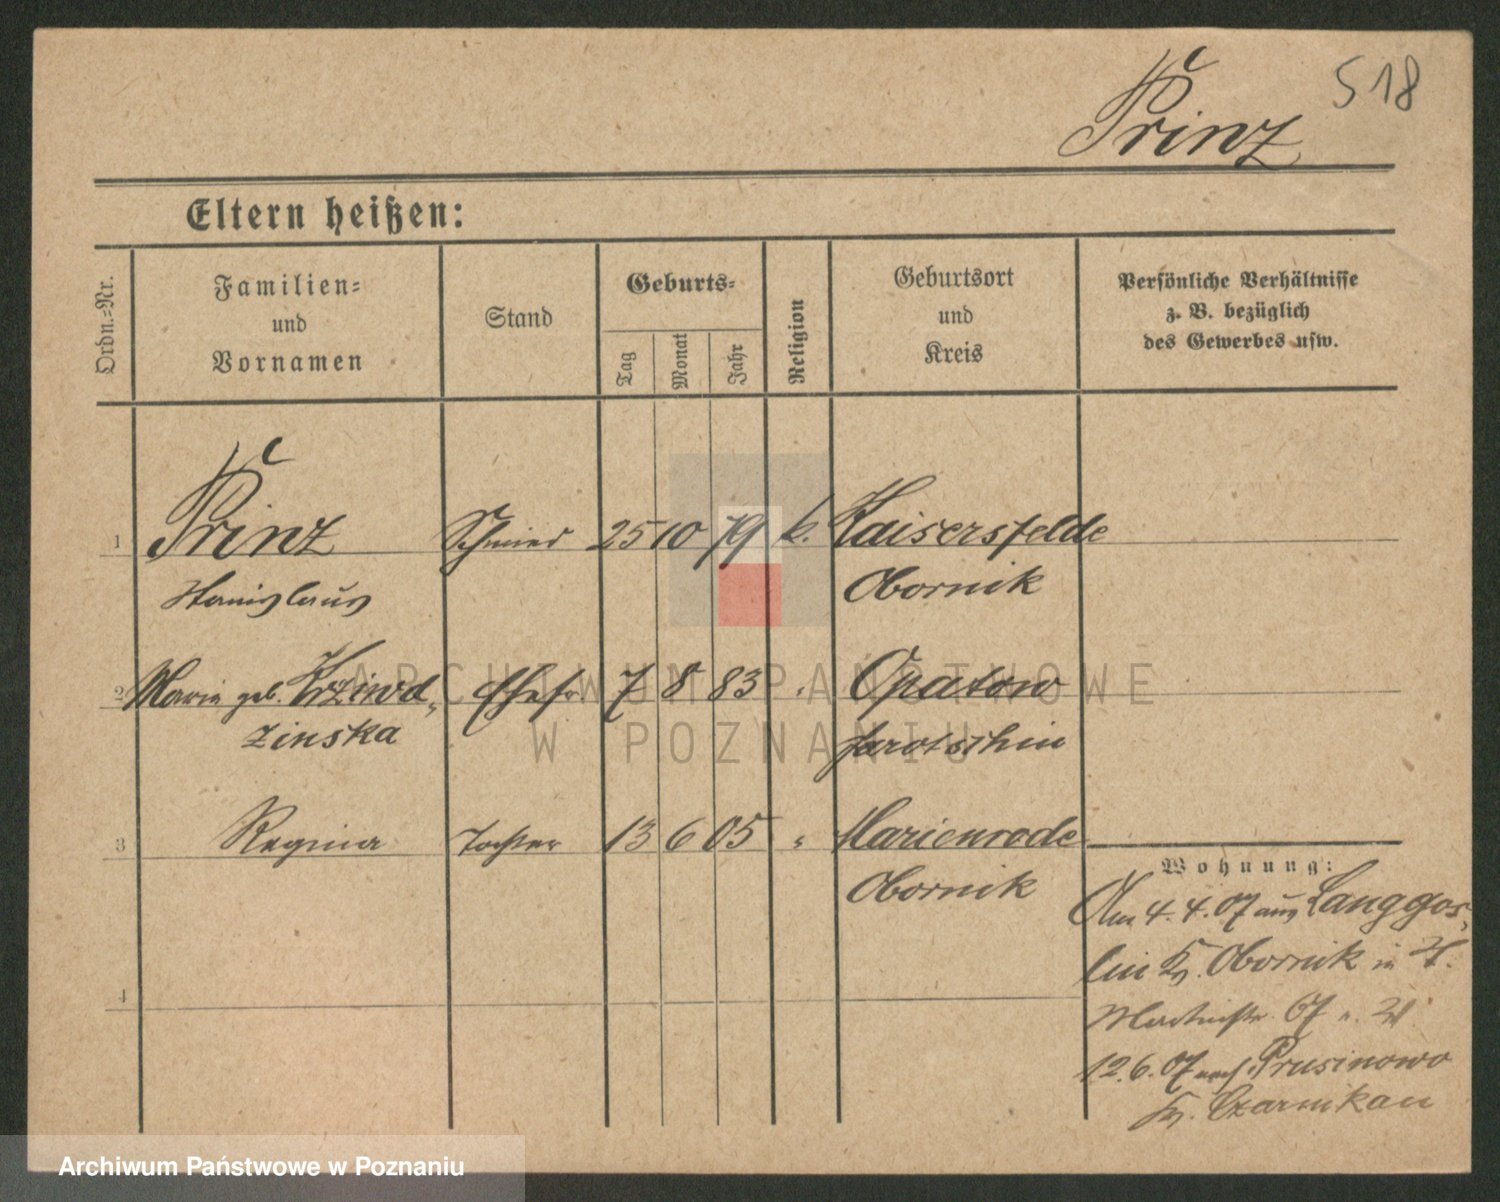 518
Prinz
Eltern heißen:
Ordn.=Nr.
Familien=
und
Vornamen
Stand
Geburts=
Tag
Monat
Jahr
Religion
Geburtsort
und
Kreis
Persönliche Verhältnisse
z. B. bezüglich
des Gewerbes usw.
1 Prinz Schmied 25 10 79 k. Kaisersfelde
Stanislaus Obornik
2 Marie geb. Krziwd- Ehefr 7 8 83 " Opatow
zinska Jarotschin
3 Regina Tochter 13 6 05 " Marienrode
Obornik
4
Wohnung:
Am 4.4.07 aus Langgos-
lin Kr. Obornik in
07
12.6.07 nach Prusinowo
Kr. Czarnikau
ARCHIWUM PAŃSTWOWE
W POZNANIU
Archiwum Państwowe w Poznaniu